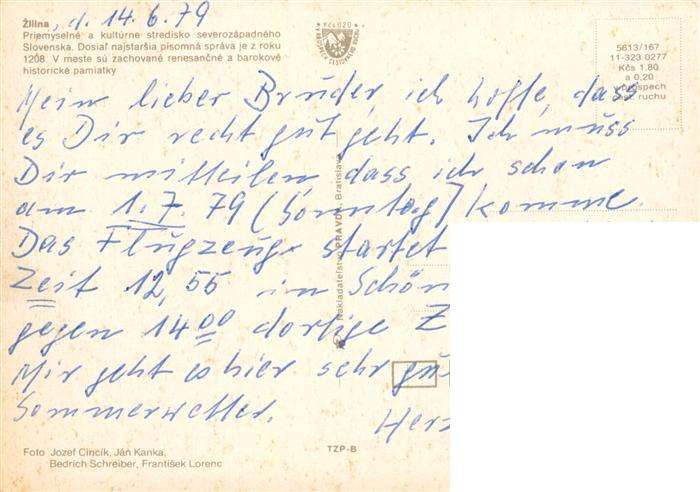 Žilina, d. 14.6.79
Priemyselné a kultúrne stredisko severozápadného
Slovenska. Dosiaľ najstaršia písomná správa je z roku
1208. V meste sú zachované renesančné a barokové
historické pamiatky
Kčs 0,20
5613/167
11-323 0277
Kčs 1,80
a 0,20
v prospech
cest. ruchu
Mein lieber Bruder, ich hoffe, dass
es Dir recht gut geht. Ich muss
Dir mitteilen dass ich schon
am 1.7.79 (Sonntag) komme.
Das Flugzeug startet
Zeit 12,55 im Schön
gegen 14⁰⁰ dortige Z
Mir geht es hier sehr gu
Sommerwetter.
Herz
Nakladateľstvo PRAVDA, Bratislava
Foto Jozef Cincík, Ján Kanka,
Bedrich Schreiber, František Lorenc
TZP-B